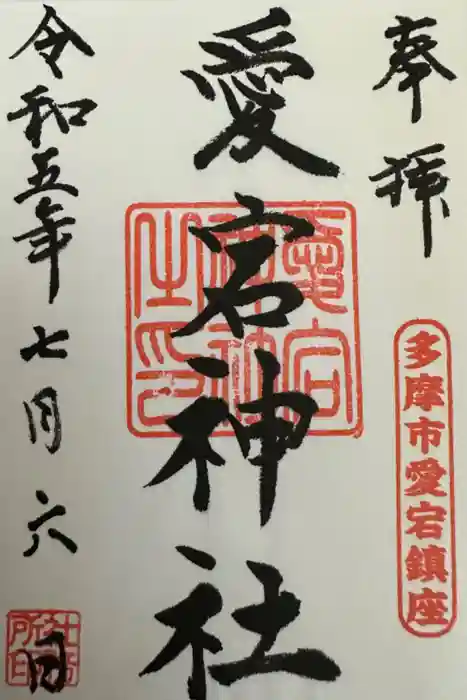 奉拝
多摩市愛宕鎮座
愛宕神社
愛宕神社之印
令和五年七月六日
社務所印